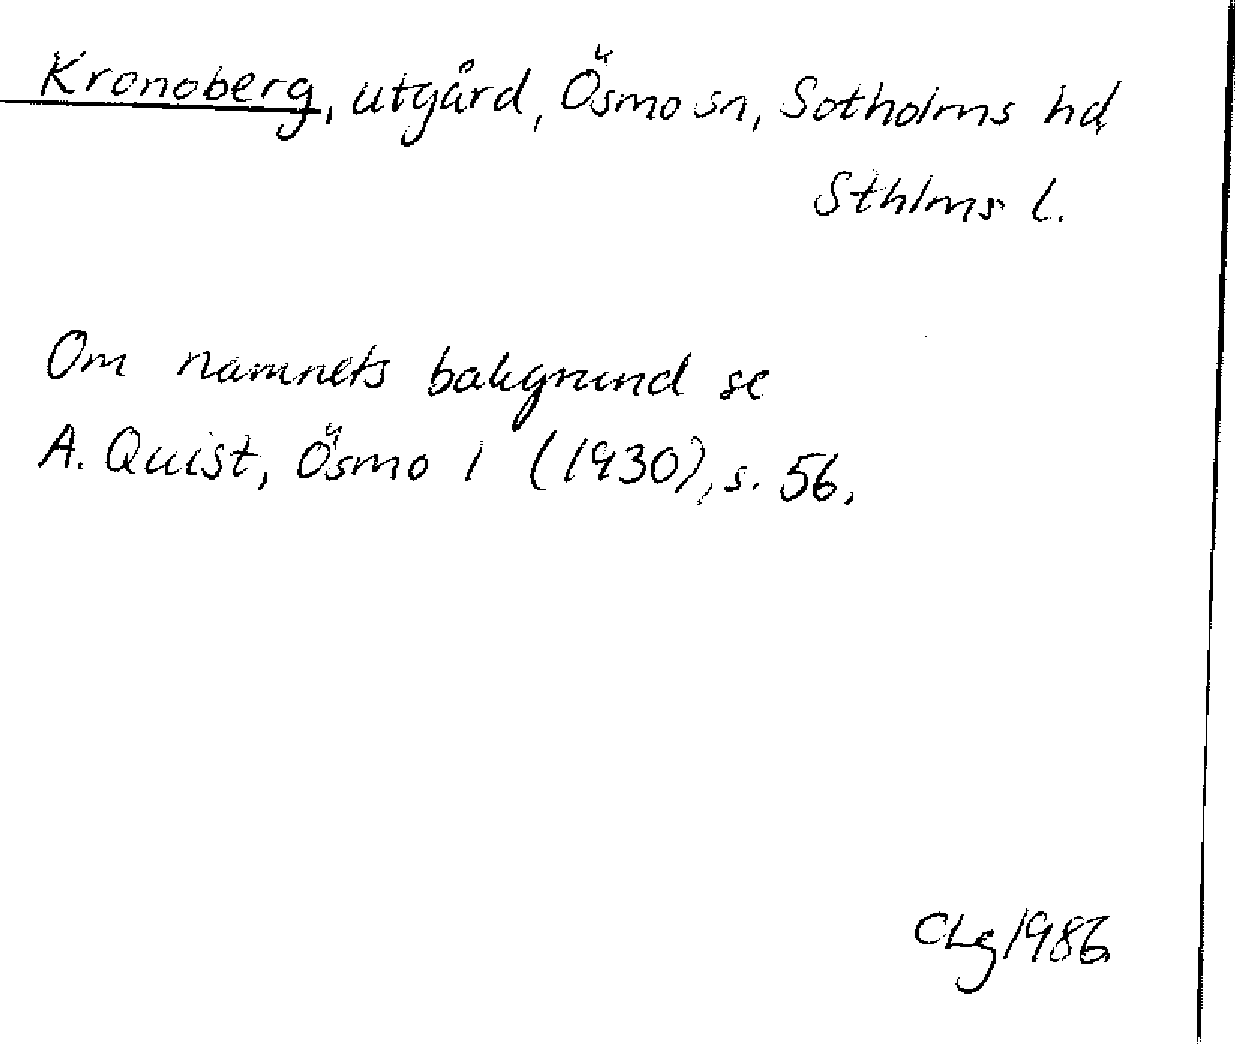 Kronoberg, utgård, Ösmo sn, Sotholms hd,
Sthlms l.
Om namnets bakgrund se
A. Quist, Ösmo 1 (1930), s. 56.
CLg 1986